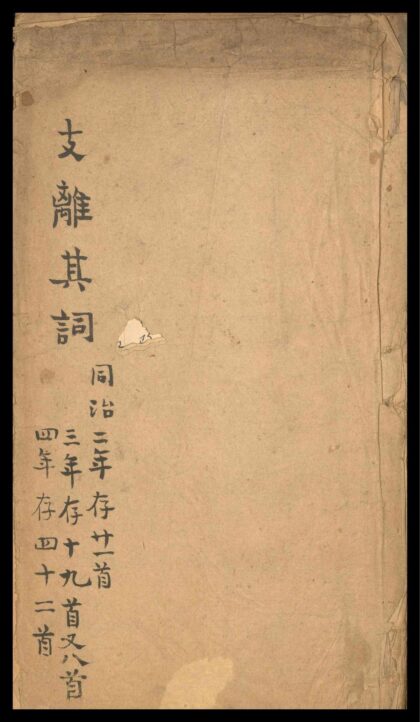 支離其詞
同治二年存廿一首
三年存十九首又八首
四年存四十二首